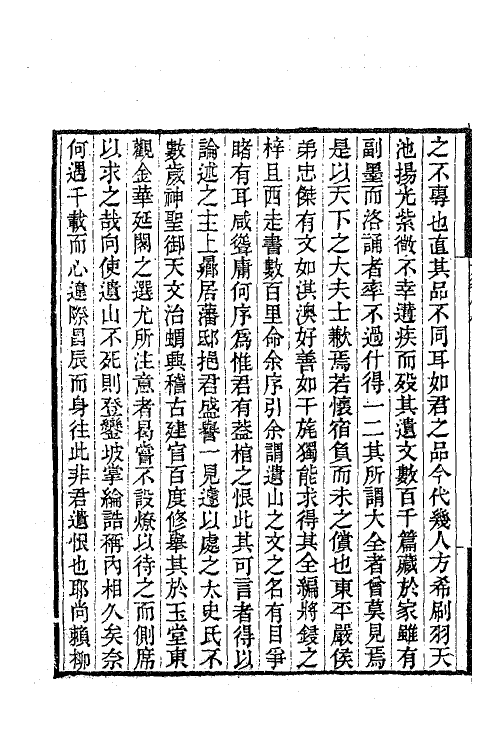 之不專也直其品不同耳如君之品今代幾人方希刷羽天
池揚光紫微不幸遘疾而歿其遺文數百千篇藏於家雖有
副墨而洛誦者率不過什得一二其所謂大全者曾莫見焉
是以天下之大夫士歉焉若懷宿負而未之償也東平嚴侯
弟忠傑有文如淇澳好善如干旄獨能求得其全編將鋟之
梓且西走書數百里命余序引余謂遺山之文之名有目爭
睹有耳咸聳庸何序爲惟君有葢棺之恨此其可言者得以
論述之主上曩居藩邸挹君盛譽一見遽以處之太史氏不
數歲神聖御天文治蝟興稽古建官百度修舉其於玉堂東
觀金華延閣之選尤所注意者曷嘗不設燎以待之而側席
以求之哉向使遺山不死則登鑾坡掌綸誥稱內相久矣奈
何遇千載而心違際昌辰而身往此非君遺恨也耶尚賴柳